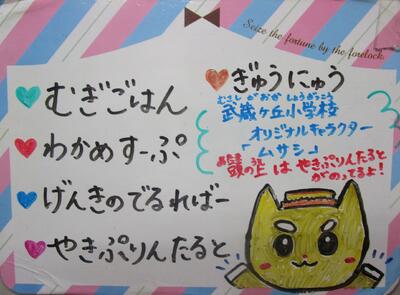 Seize the fortune by the forelock.
むぎごはん
わかめすーぷ
げんきのでるればー
やきぷりんたると
ぎゅうにゅう
むさしがおかしょうがっこう
武蔵ヶ丘小学校
オリジナルキャラクター
「ムサシ」
の上はやきぷりんたると
がのってるよ!